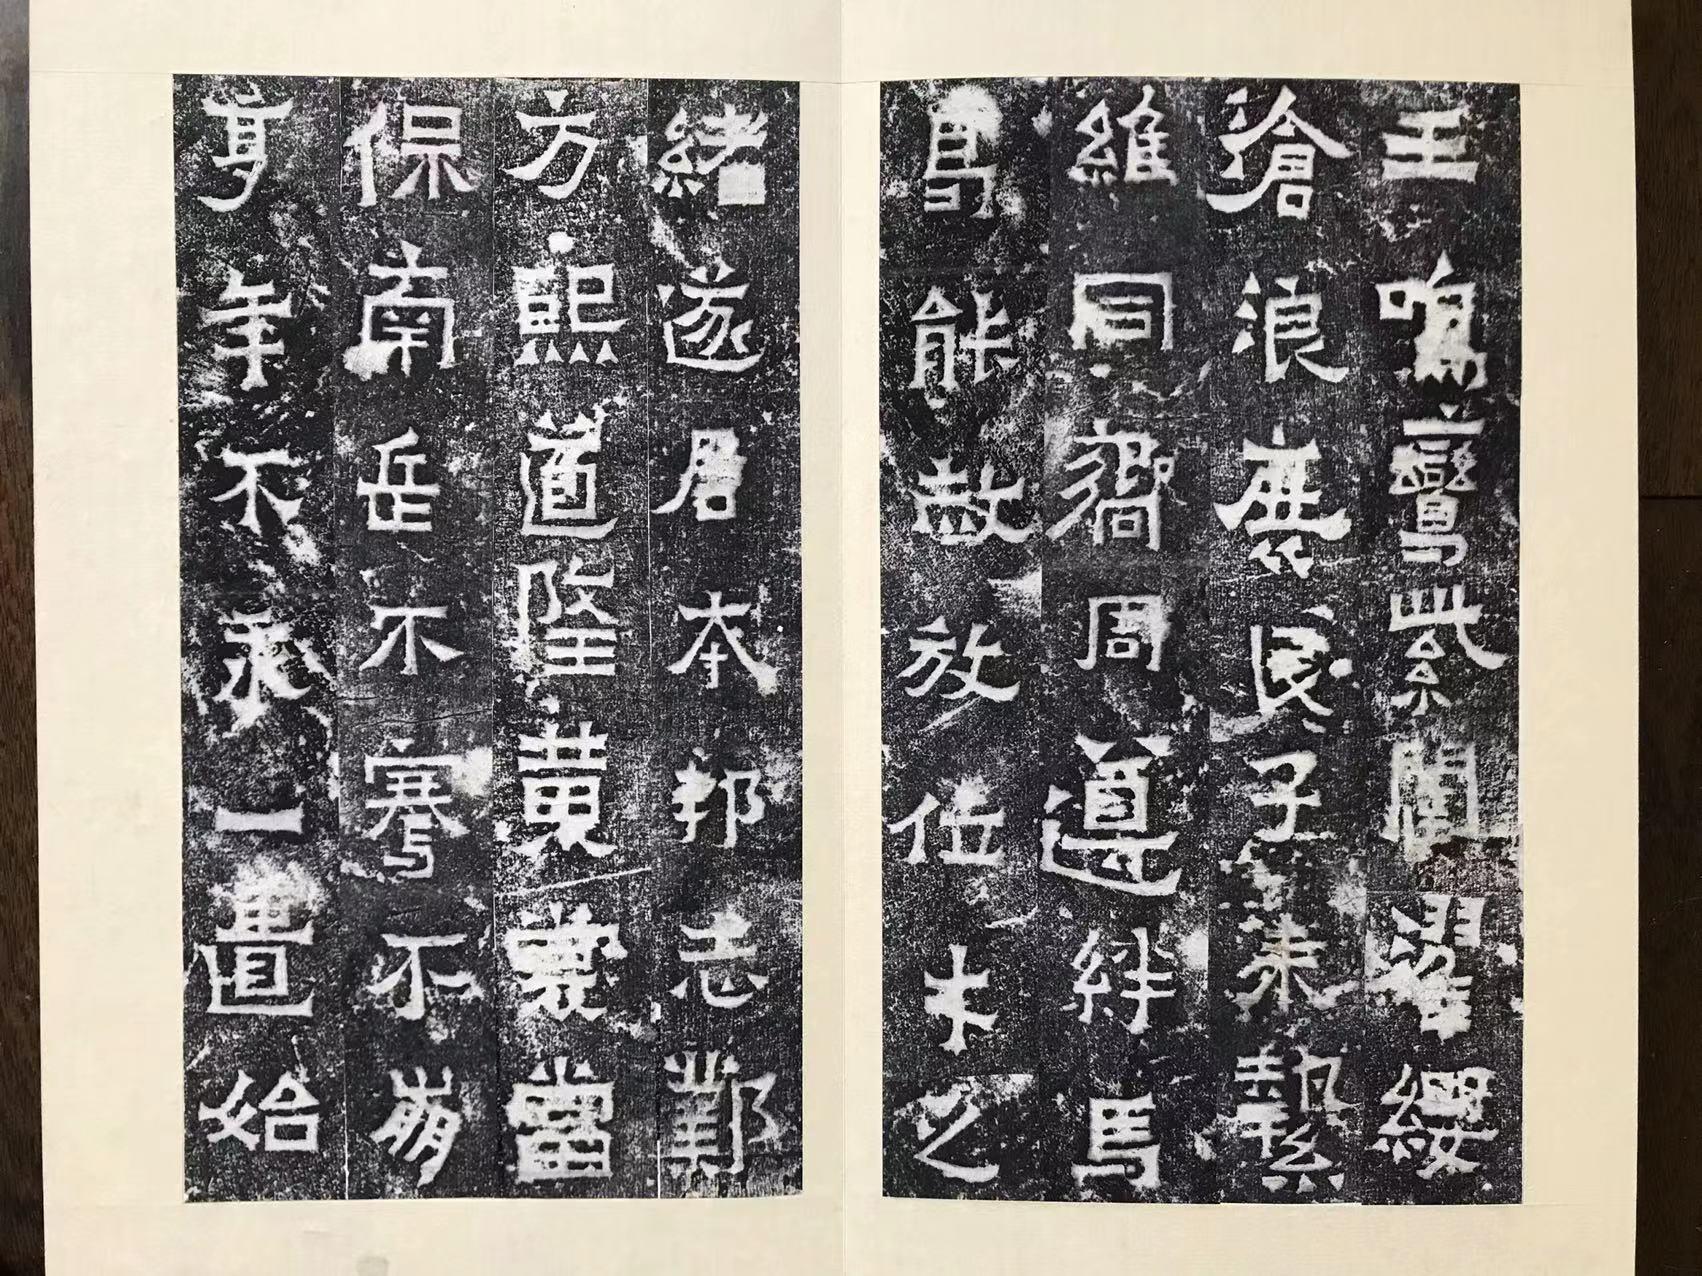 王鳴鸞紫闥濯纓
滄浪庶民子來繫
維同響周遵絆馬
能放位之
緒遂居本邦志鄴
方熙道隆黃裳當
保南岳不騫不崩
享年不永一匱始